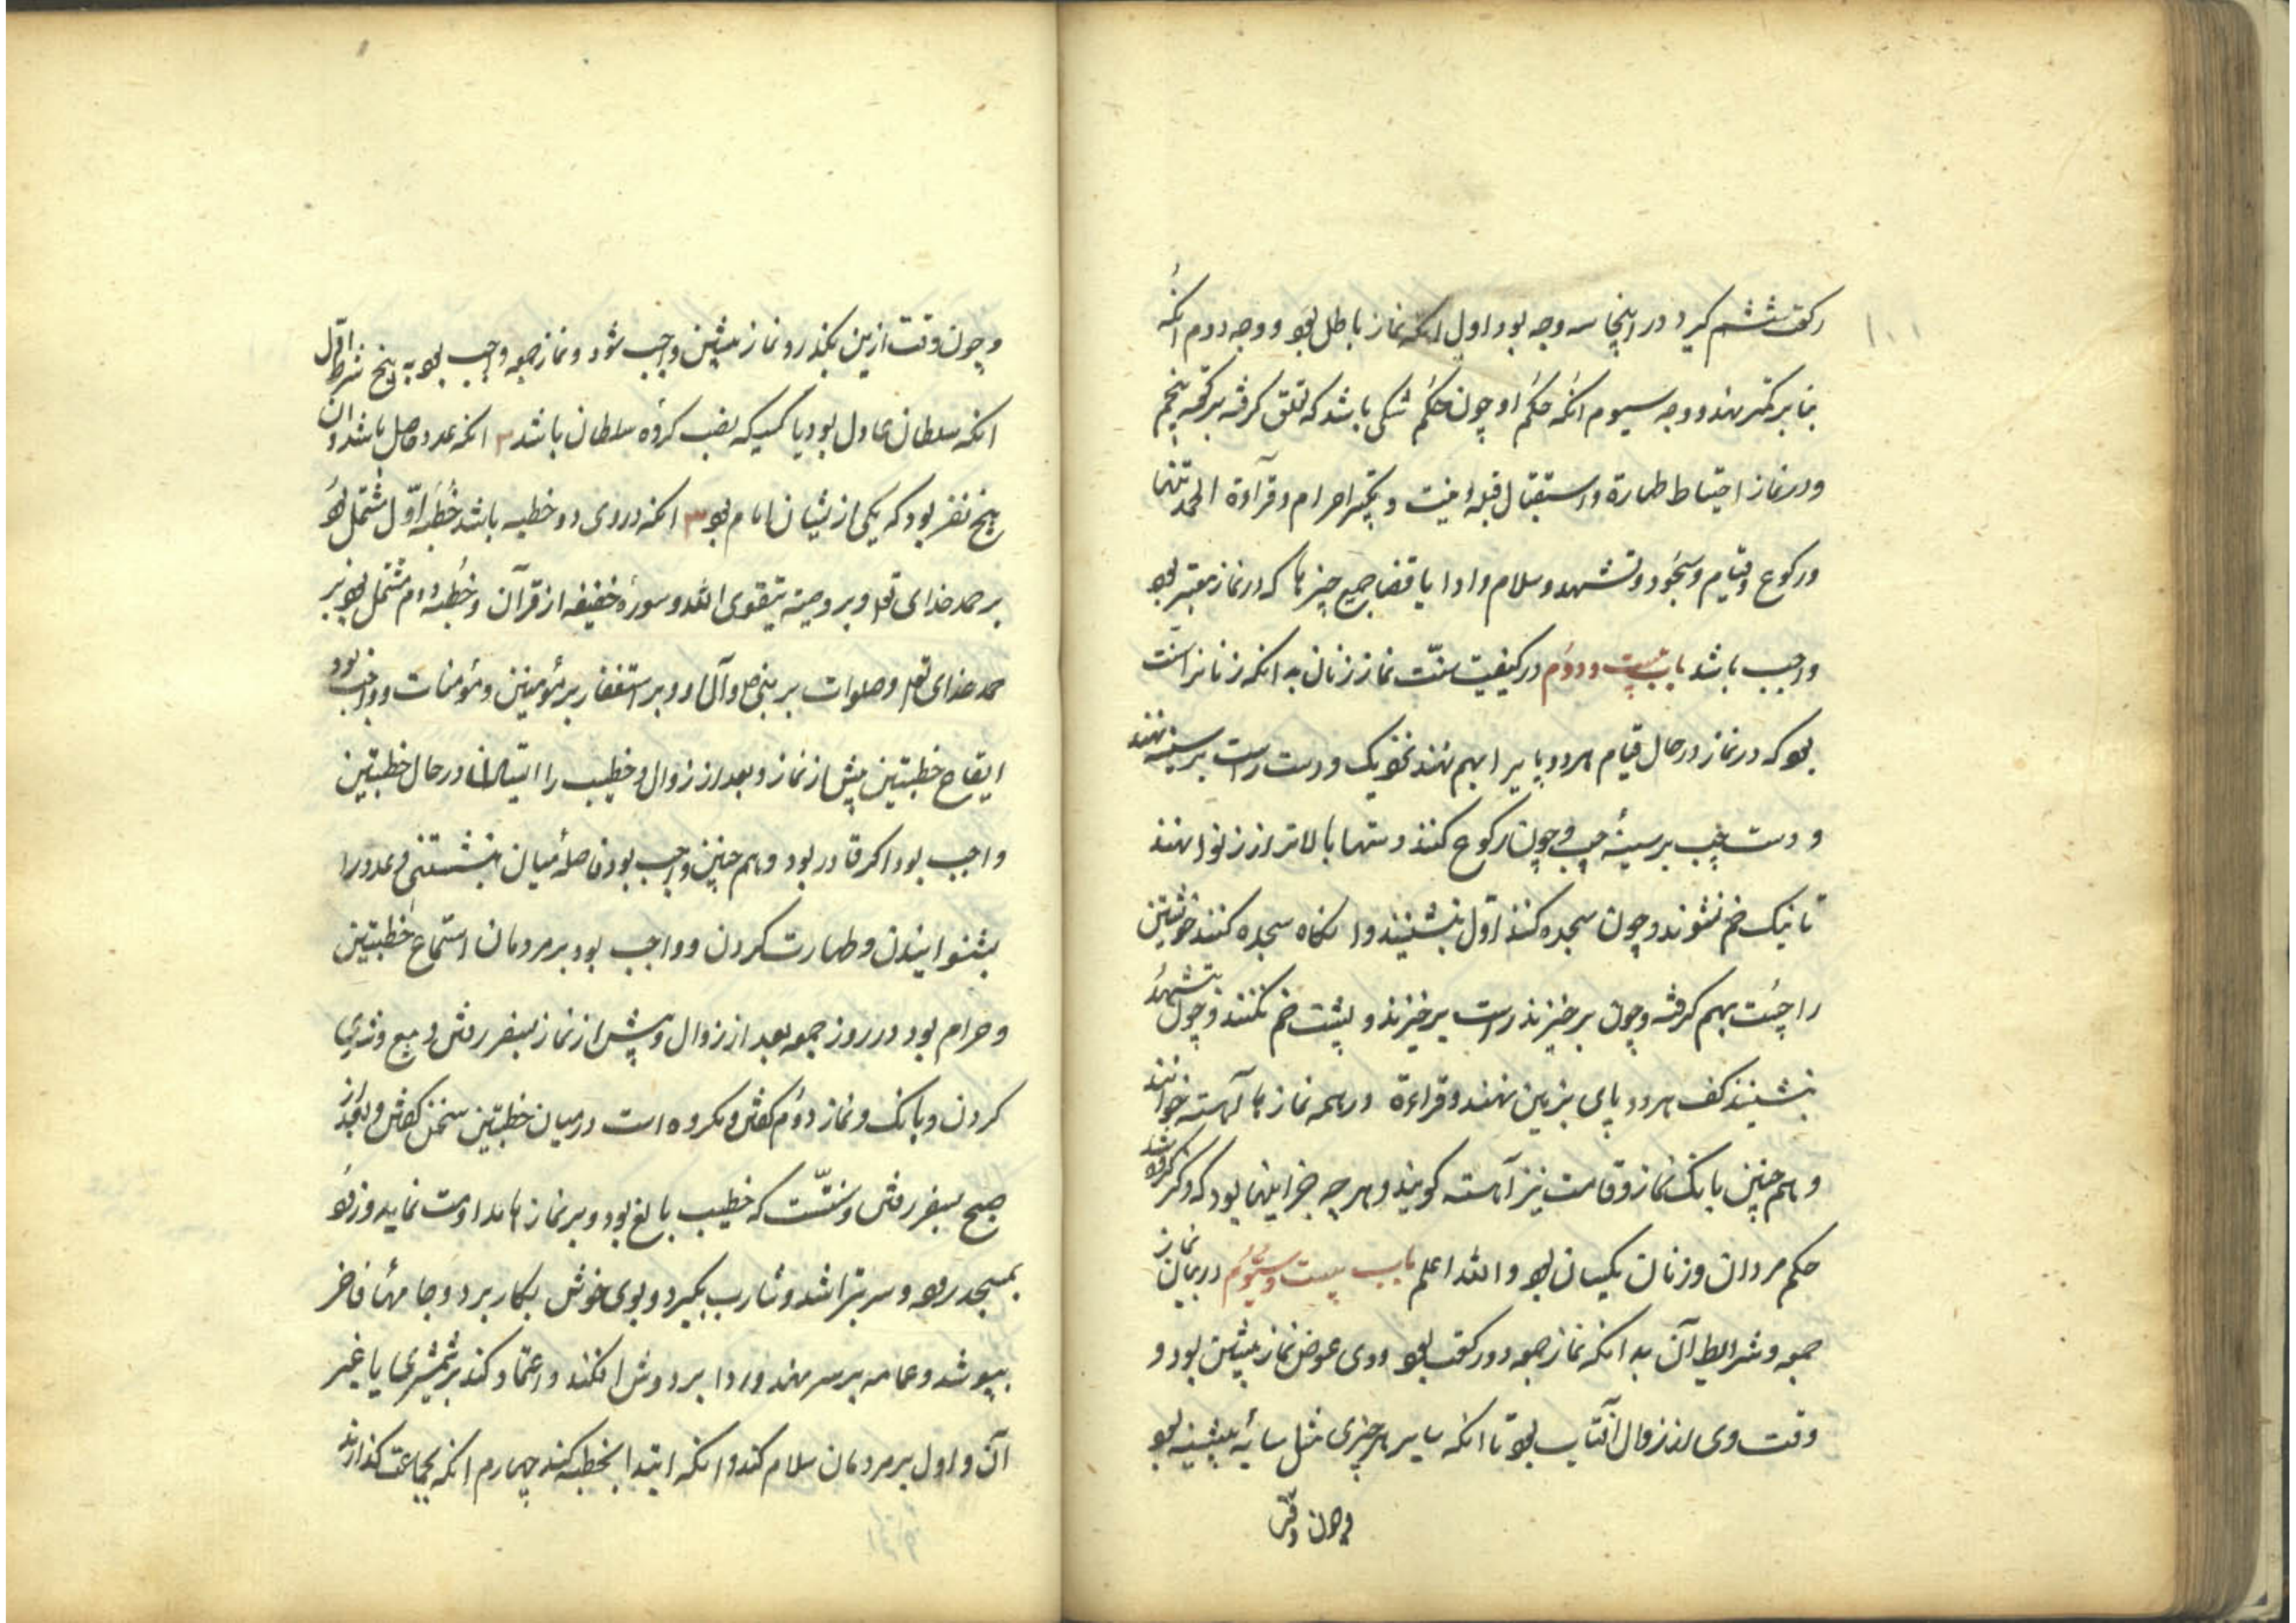 رکعت ششم گیرد در اینجا سه وجه بود اول انکه نماز باطل بود و وجه دوم انکه
بنا بر کمتر نهند و وجه سیوم انکه حکم او چون حکم شکی باشد که تعلق گرفته برکعه پنجم
و در نماز احتیاط طهارة و استقبال قبله و نیت و تکبیر احرام و قرآءة الحمد تنها
و رکوع و قیام و سجود و تشهد و سلام و ادا یا قضا جمیع چیزها که در نماز معتبر بود
واجب باشد باب بیست و دوم در کیفیت سنّت نماز زنان بدانکه زنانرا سنت
بود که در نماز در حال قیام هر دو پا یرا بهم نهند نیک و دست راست بر سینه نهند
و دست چپ بر سینهٔ چپ و چون رکوع کنند دستها بالاتر از زنوا نهند
تا نیک خم نشوند و چون سجده کنند اوّل بنشینند و انکاه سجده کنند خویشتن
را چست بهم گرفته و چون بر خیزند راست برخیزند و پشت خم نکنند و چون بتشهد
بنشینند کف هر دو پای بزمین نهند و قراءة در همه نمازها آهسته خوانند
و هم چنین بانک نماز و قامت نیز آهسته کویند و هر چه جز اینها بود که ذکر کرده شد
حکم مردان و زنان یکسان بود و الله اعلم باب بیست و سیّوم در بیان نماز
جمعه و شرایط آن بدانکه نماز جمعه دو رکعت بود و وی عوض نماز پیشین بود و
وقت وی از زوال آفتاب بود تا انکه سایهٔ هر چیزی مثل سایهٔ پیشینه بود
و چون وقت
۱۰۱
و چون وقت ازین بکذرد نماز پیشین واجب شود و نماز جمعه واجب بود به پنج شرط اوّل
انکه سلطان عادل بود یا کسیکه نصب کردهٔ سلطان باشد ۲ انکه عدد حاصل باشد و ان
پنج نفر بود که یکی ازیشان امام بود ۳ انکه در وی دو خطبه باشد خُطبهٔ اوّل مشتمل بود
بر حمد خدای تعالی و بر وصیة بتقوی الله و سورهٔ خفیفه از قرآن و خُطبه دوم مشتمل بود بر
حمد خدای تعالی و صلوات بر نبی و آل او و بر استغفار بر مؤمنین و مؤمنات و واجب بود
ایقاع خطبتین پیش از نماز و بعد از زوال و خطیب را ایستادن در حال خطبتین
واجب بود اکر قادر بود و هم چنین واجب بود فاصلهٔ میان بنشستنی و عدد را
بشنوانیدن و طهارت کردن و واجب بود بر مردمان استماع خطبتین
و حرام بود در روز جمعه بعد از زوال و پیش از نماز بسفر رفتن و بیع و شری
کردن و بانک و نماز دوم کفتن و مکروه است در میان خطبتین سخن کفتن و بعد از
صبح بسفر رفتن و سنّتست که خطیب بالغ بود و بر نمازها مداومت نماید و زود
بمسجد رود و سر بتراشد و شارب بکیرد و بوی خوش بکار برد و جامهٔ فاخر
بپوشد و عمامه بر سر نهد و ردا بر دوش افکند و اعتماد کند بر شمشیری یا غیر
آن و اول بر مردمان سلام کند و انکه ابتدا بخطبه کند چهارم انکه بجماعت کذارند